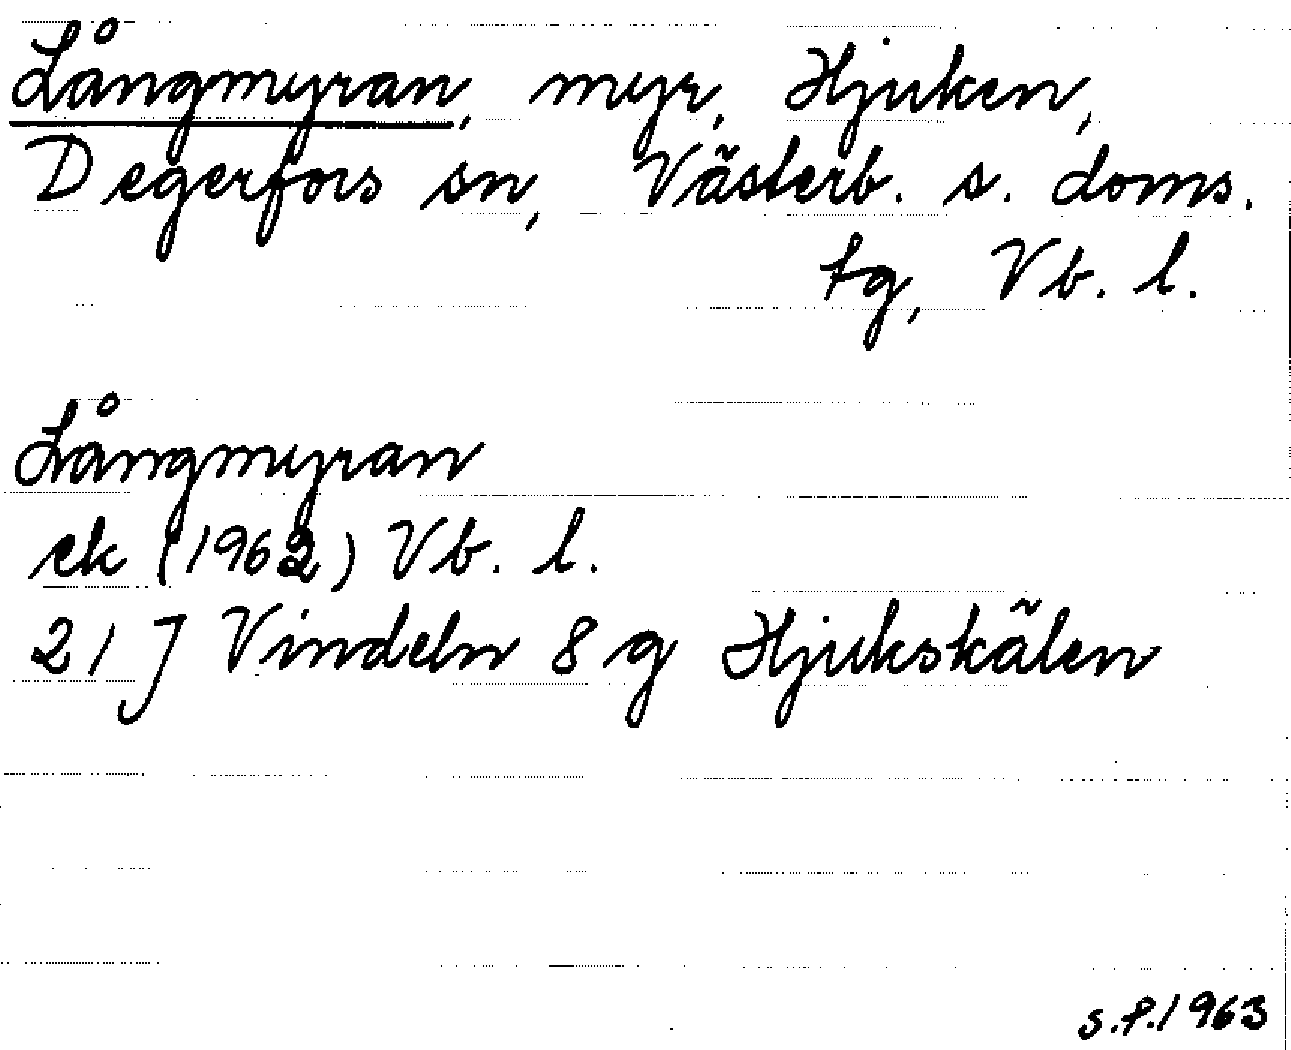 Långmyran, myr, Hjuken,
Degerfors sn, Västerb. s. doms.
tg, Vb. l.
Långmyran
ek (1962) Vb. l.
21 J Vindeln 8 g Hjukskälen
S.P. 1963